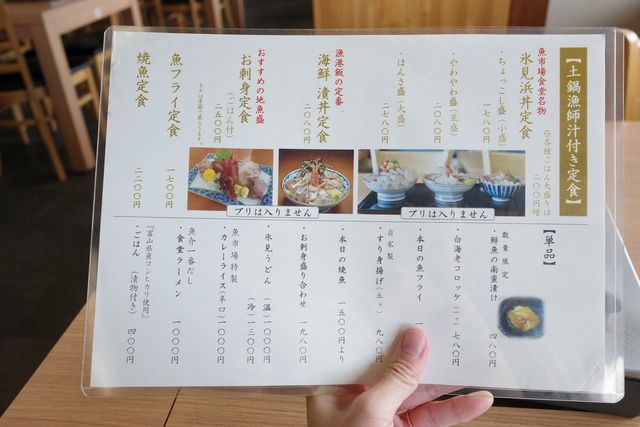 【土鍋漁師汁付き定食】
※各種ごはん大盛りは二〇〇円増
魚市場食堂名物
氷見浜丼定食
・ちょっこし盛(小盛)
一七八〇円
・やわやわ盛(並盛)
二〇八〇円
・はんさ盛(大盛)
二七八〇円
漁港飯の定番
海鮮漬丼定食
二〇八〇円
おすすめの地魚盛
お刺身定食
(ごはん付)
二五〇〇円
魚フライ定食
一七〇〇円
焼魚定食
二二〇〇円
ブリは入りません
ブリは入りません
【単品】
数量限定
・鮮魚の南蛮漬け
四八〇円
・白海老コロッケ(一ヶ)
七八〇円
・本日の魚フライ
一
自家製
・すり身揚げ(五ヶ)
九八〇円
・本日の焼魚
一五〇〇円より
・お刺身盛り合わせ
一九八〇円
・氷見うどん(温)一〇〇〇円
(冷)一〇〇〇円
魚市場特製
・カレーライス(辛口)一二〇〇円
魚介一番だし
・食堂ラーメン
一〇〇〇円
『富山県産コシヒカリ使用』
・ごはん(漬物付き)
四〇〇円